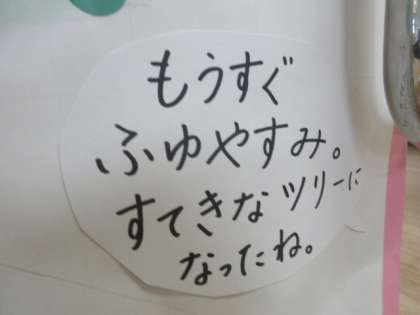 もうすぐ
ふゆやすみ。
すてきなツリーに
なったね。